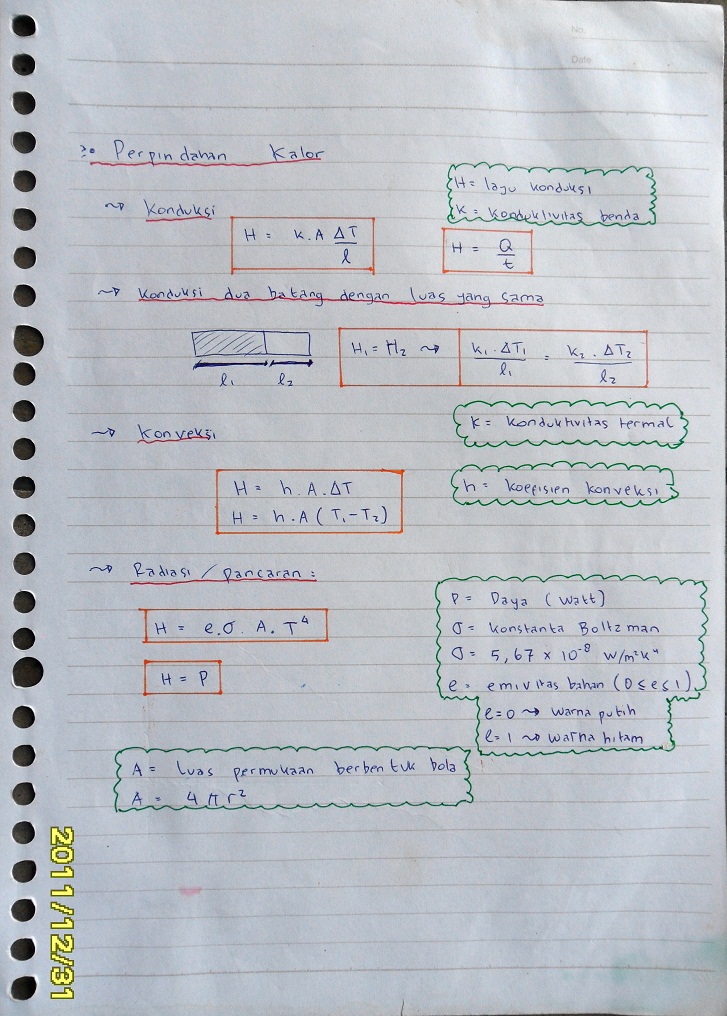 No.
Date
Perpindahan Kalor
H = laju konduksi
K = Konduktivitas benda
~> Konduksi
H = k.A ΔT/l
H = Q/t
~> Konduksi dua batang dengan luas yang sama
H₁ = H₂ ~> k₁ . ΔT₁/l₁ = k₂ . ΔT₂/l₂
l₁ l₂
K = Konduktivitas termal
~> Konveksi
H = h.A.ΔT
H = h.A (T₁-T₂)
h = koefisien konveksi
~> Radiasi / pancaran :
H = e.σ. A. T⁴
H = P
P = Daya (watt)
σ = Konstanta Boltzman
σ = 5,67 x 10⁻⁸ W/m²K⁴
e = emivitas bahan (0≤e≤1)
e=0 ~> warna putih
e=1 ~> warna hitam
A = luas permukaan berbentuk bola
A = 4πr²
2011/12/31